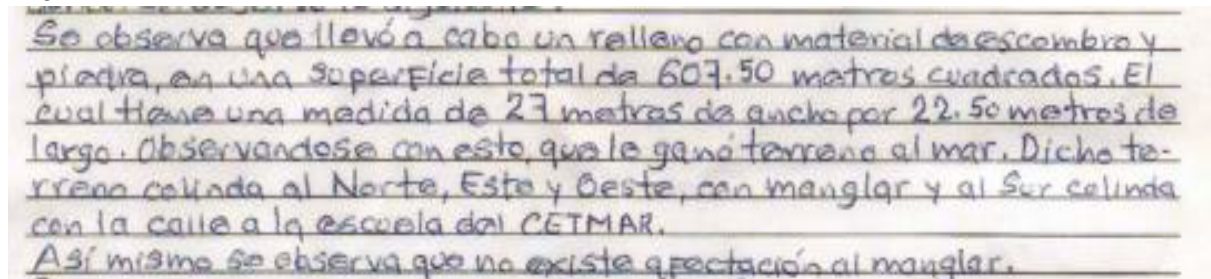 Se observa que llevó a cabo un relleno con material de escombro y
piedra, en una superficie total de 607.50 metros cuadrados. El
cual tiene una medida de 27 metros de ancho por 22.50 metros de
largo. Observandose con esto, que le ganó terreno al mar. Dicho te-
rreno colinda al Norte, Este y Oeste, con manglar y al Sur colinda
con la calle a la escuela del CETMAR.
Así mismo se observa que no existe afectación al manglar.